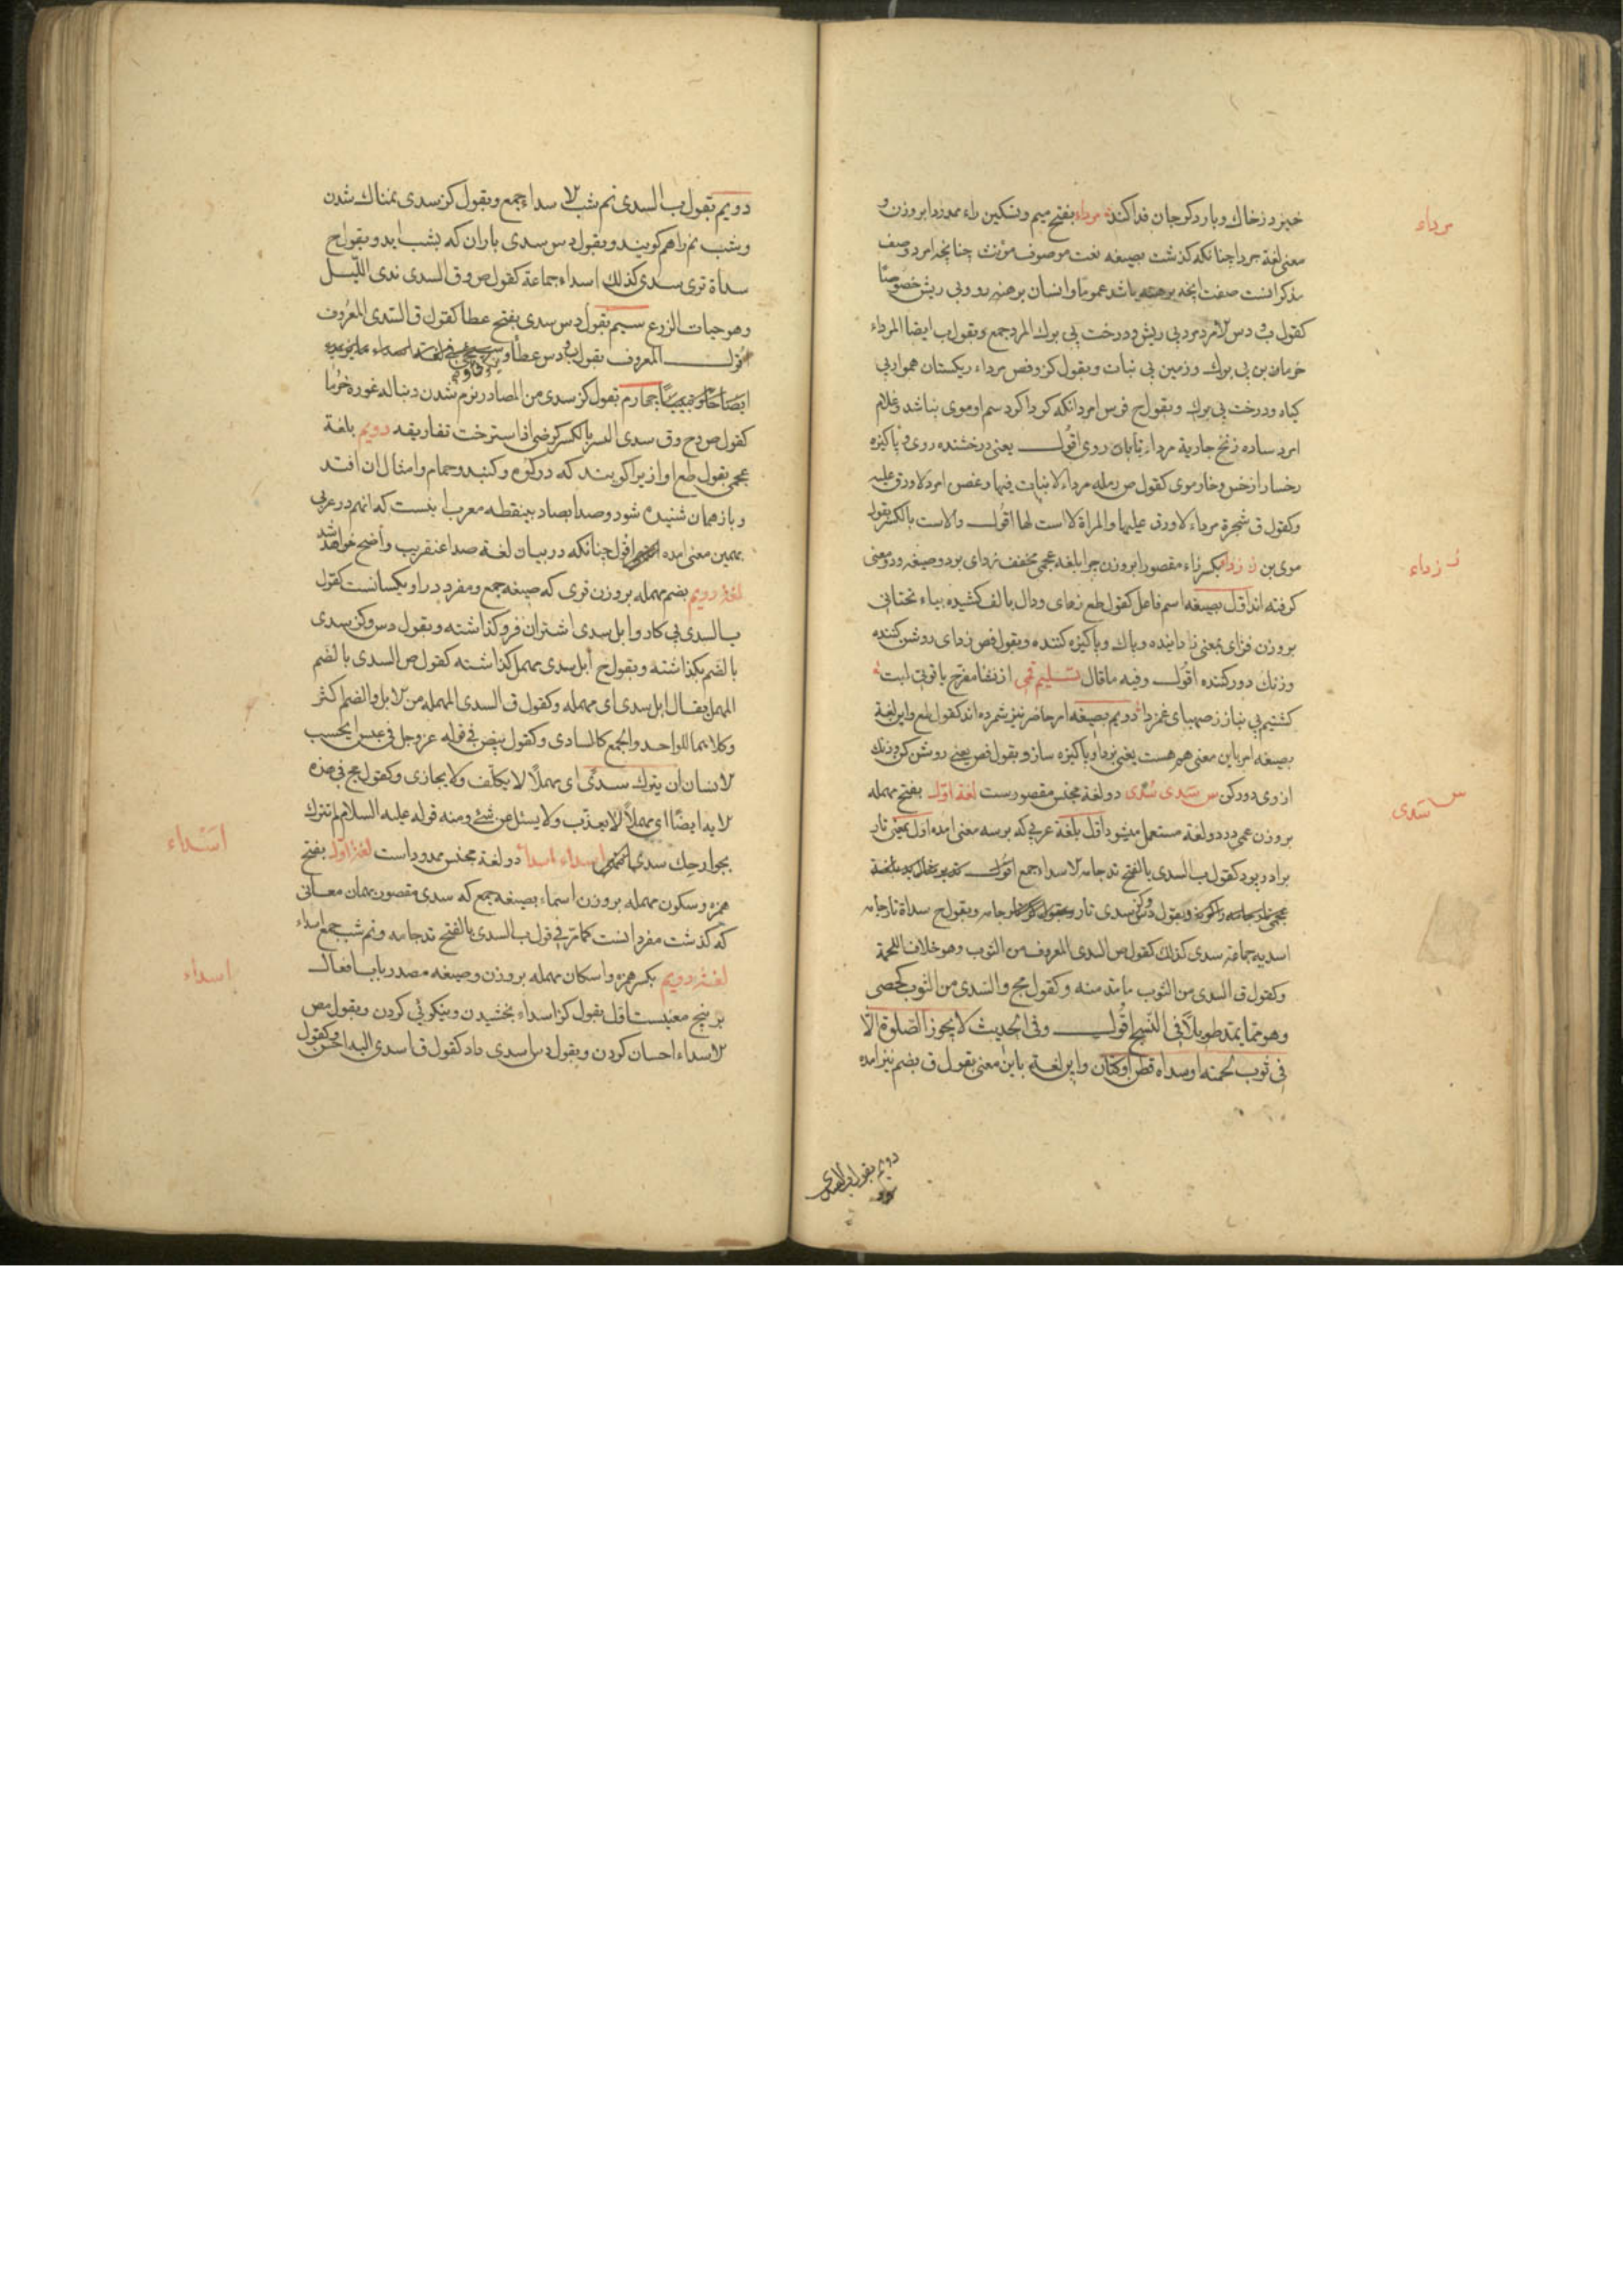 خیزد ز خاک و بار دکر جان فدا کند مرداء بفتح میم و تسکین راء ممدودا بروزن و
معنی لغة جرداء چنانکه کذشت بصیغه نعت موصوف مؤنث چنانچه امرد وصف
مذکر انست صفت انچه برهنه باشد عموما و انسان برهنه رو و بی ریش خصوصًا
کقول ف دس لامرد مرد بی ریش و درخت بی برك المرد جمع و بقول ب ایضا المرداء
خرمابن بی برك و زمین بی نبات و بقول کز و فص مرداء ریکستان هموار بی
کیاه و درخت بی برك و بقول ح فرس امرد انکه کرداکرد سم او موی نباشد و غلام
امرد ساده زنخ جاریة مرداء تابان روی اقول یعنی درخشنده روی و پاکیزه
رخسار از خس و خار موی کقول ص رملة مرداء لا نبات فیها و غصن امرد لا ورق علیه
وکقول ق شجرة مرداء لا ورق علیها والمراة لا است لها اقول والاست بالکسر بقول
موی بن ز زدا بکسر زاء مقصورا بروزن چرا بلغة عجمی مخفف زدای بود و صیغه و دو معنی
کرفته اند اول بصیغه اسم فاعل کقول طع زدای و دال بالف کشیده بیاء تحتانی
بروزن فزای بمعنی زداینده و پاك و پاکیزه کننده و بقول فص زدای روشن کننده
و زنك دور کننده اقول و فیه ما قال تسلیم قمی از نفا مفرح یاقوتی لبت
کشتیم بی نیاز ز صهبای غمزدا دویم بصیغه امر حاضر نیز شمرده اند کقول طع و این لغة
بصیغه امر باین معنی هم هست یعنی بزدا و پاکیزه ساز و بقول فص یعنی روشن کن و زنك
از وی دور کن س سَدی سُدی دو لغة مجنس مقصورست لغة اول بفتح مهمله
بروزن عمی در دو لغة مستعمل میشود اول بلغة عربی که بر سه معنی امده اول بمعنی تار
برادر پود کقول ب السدی بالفتح تد جامه لاسداء جمع اقول
و بقول دس و کز سدی تار جامه و بقول ح سداة تار جامه
اسدیه جماعة سدی کذلك کقول ص السدی المعروف من الثوب وهو خلاف اللحمة
وکقول ق السدی من الثوب ما مد منه وکقول مج والسدی من الثوب کحصی
وهو ما یمتد طویلاً فی النسج اقول وفی الحدیث لا یجوز الصلوة الا
فی ثوب لحمته او سداه قطن او کتان و این لغة باین معنی بقول ق بضم نیز امده
دویم بقول ب السدی
مرداء
ز زداء
س سَدی
دویم بقول ب السدی نم شب لاسداء جمع و بقول کز سدی نمناك شدن
و شب نم را هم کویند و بقول دس سدی باران که بشب اید و بقول ح
سداة تری سدی کذلك اسداء جماعة کقول ص و ق السدی ندی اللیل
وهو حیات الزرع سیم بقول دس سدی بفتح عطا کقول ق السدی المعروف
اقول المعروف بقول دس عطا و
چهارم بقول کز سدی من المصادر نرم شدن دنباله غوره خرما
کقول ص ح و ق سدی البسر بالکسر کرضی اذا استرخت تفاریقه دویم بلغة
عجمی بقول طع اوازیرا کویند که در کوه و کنبد و حمام و امثال ان افتد
و باز همان شنیده شود و صدا بصاد بینقطه معرب اینست که انهم در عربی
بهمین معنی امده اقول چنانکه در بیان لغة صدا عنقریب واضح خواهد شد
لغة دویم بضم مهمله بروزن قری که صیغه جمع و مفرد در او یکسانست کقول
ب السدی بی کار و ابل سدی اشتران فرو کذاشته و بقول دس و کز سدی
بالضم بکذاشته و بقول ح أبل سدی مهمل کذاشته کقول ص السدی بالضم
المهمل یقال ابل سدی ای مهمله وکقول ق السدی المهمله من لابل والضم اکثر
وکلاهما للواحد والجمع کالسادی وکقول بیض فی قوله عز وجل ایحسب
لانسان ان یترك سدًی ای مهملًا لا یکلّف ولا یجازی وکقول مج فی هذه
لایه ایضًا ای مهملًا لا یعذب ولا یسئل عن شئ ومنه قوله علیه السلام لم تترك
بجوارحك سدی اسداء اسداء دو لغة مجنس ممدوداست لغة اول بفتح
همزه و سکون مهمله بروزن اسماء بصیغه جمع که سدی مقصور بهمان معانی
که کذشت مفرد انست کما مر فی قول ب السدی بالفتح تد جامه و نم شب جمع اسداء
لغة دویم بکسر همزه و اسکان مهمله بروزن و صیغه مصدر باب افعال
بر پنج معنیست اول بقول کز اسداء بخشیدن و نیکوئی کردن و بقول مص
لاسداء احسان کردن و بقول دس اسدی داد کقول ق اسدی الیه احسن وکقول
اسداء
اسداء